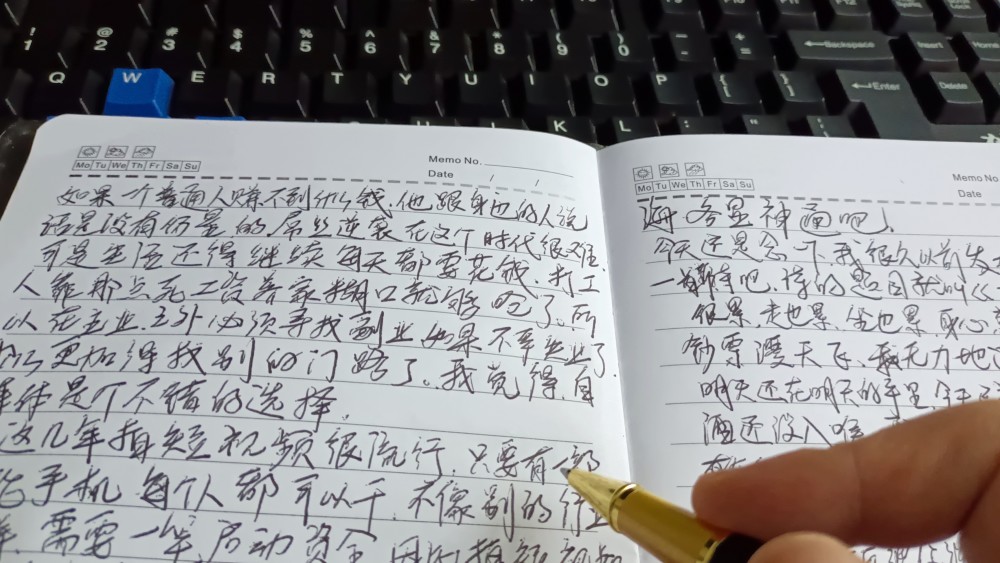 ! 1
@ 2
# 3
$ 4
% 5
^ 6
& 7
* 8
( 9
) 0
- 
+ =
Backspace
Insert
Home
Q W E R T Y U I O P { [ } ]
Enter
Delete
K L :
Memo No.
Date / /
Mo Tu We Th Fr Sa Su
如果一个普通人赚不到什么钱、他跟身边的人说
话是没有份量的 屌丝逆袭在这个时代很难.
可是生活还得继续 每天都要花钱、打工
人靠那点死工资养家糊口就够呛了、所
以在主业之外必须寻找副业 如果不幸失业了
所以更加得找别的门路了、我觉得 自
媒体是个不错的选择.
这几年拍短视频很流行、只要有一部
手机 每个人都可以干、不像别的行业
需要一笔启动资金
Memo No.
Date
Mo Tu We Th Fr Sa Su
海 各显神通吧!
今天还是念一下我很久以前发
一首 吧、诗的题目就叫
很累、走也累、坐也累 取心
钞票漫天飞、我无力地
明天还在明天的
酒还没入喉